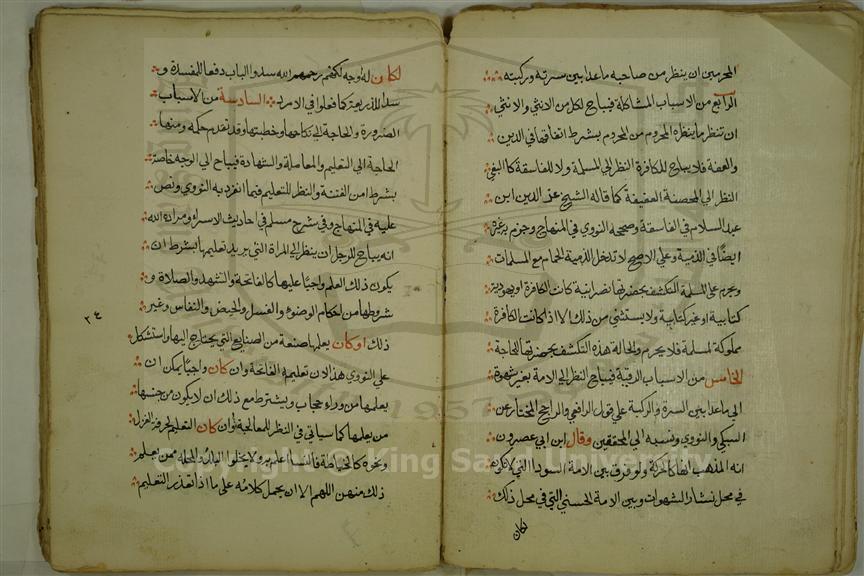 المحرمين ان ينظر من صاحبه ماعدا بين سرته وركبته
الرابع من الاسباب المشاكلة فيباح لكل من الانثي والانثي
ان تنظر ما ينظره المحروم من المحروم بشرط اتفاقهما في الدين
والعفة فلا يباح للكافرة النظر الي المسلمة ولا للفاسقة كالبغي
النظر الي المحصنة العفيفة كما قاله الشيخ عز الدين ابن
عبد السلام في الفاسقة وصححه النووي في المنهاج وجزم بغيره
ايضا في الذمية وعلي الاصح لا تدخل الذمية الحمام مع المسلمات
ويحرم علي المسلمة التكشف بحضرتها نصرانية كانت الكافرة او يهودية
كتابية او غير كتابية ولا يستثني من ذلك الا اذا كانت الكافرة
مملوكة لمسلمة فلا يحرم والحالة هذه التكشف بحضرتها للحاجة
الخامس من الاسباب الرقية فيباح النظر الي الامة بغير شهوة
الي ماعدا بين السرة والركبة علي قول الرافعي والراجح المختار عن
السبكي والنووي ونسبه الي المحققين وقال ابن ابي عصرون
انه المذهب انها كالحرة ولو فرق بين الامة السودا التي لا تكون
في محل تشار الشهوات وبين الامة الحسني التي في محل ذلك
لكان
لكان له وجه لكنهم رحمهم الله سدوا الباب دفعا للمفسدة و
سدا للذريعة كما فعلوا في الامرد السادسة من الاسباب
الضرورة والحاجة الي نكاحها وخطبتها وقد تقدم حكمه ومنها
الحاجة الي التعليم والمعاملة والشهادة فيباح الي الوجه خاصة
بشرط امن الفتنة والنظر للتعليم فيما انفرد به النووي ونص
عليه في المنهاج وفي شرح مسلم في احاديث الاسراء ومراده الله
انه يباح للرجل ان ينظر الي المراة التي يريد تعليمها بشرط ان
يكون ذلك العلم واجبا عليها كالفاتحة والتشهد والصلاة و
شروطها من احكام الوضوء والغسل والحيض والنفاس وغير
ذلك او كان يعلمها صنعة من الصنايع التي يحتاج اليها واستشكل
علي النووي هذا لان تعليمه الفاتحة وان كان واجبا يمكن ان
يعلمها من وراء حجاب ويشترط مع ذلك ان لا يكون من جنسها
من يعلمها كما سياتي في النظر للمعالجة وان كان التعليم لحرفة الغزل
ونحوه كالخياطة فالنسا اعلم به ولا تخلوا البلد والمحلة ممن يعلم
ذلك منهن اللهم الا ان يحمل كلامه علي ما اذا تعذر التعليم
٢٤
Copyright © King Saud University
1957